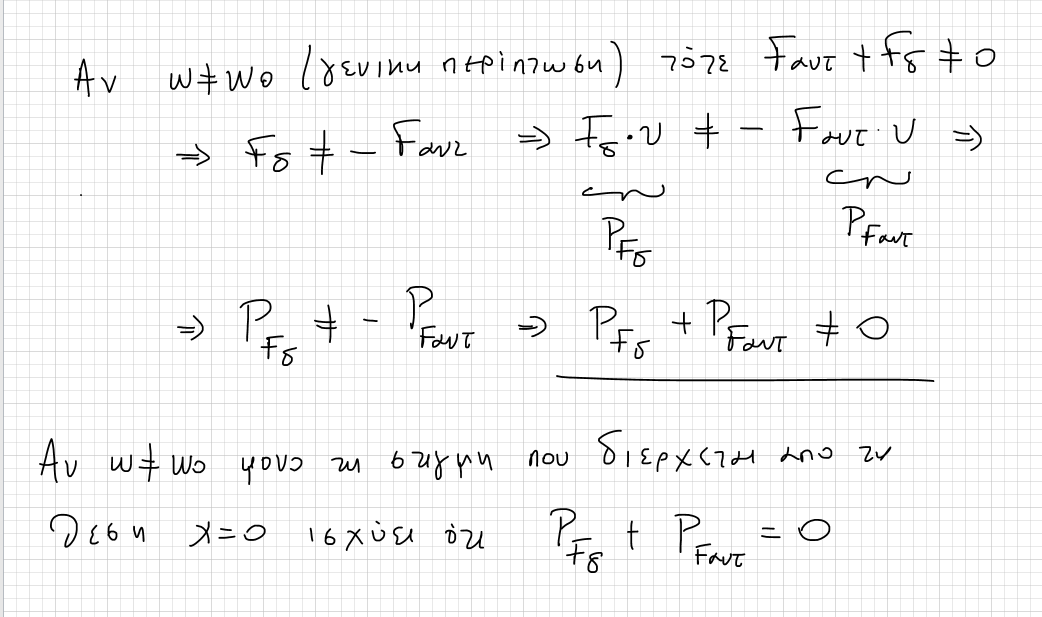 Αν ω≠ωο (γενικη περίπτωση) τότε Fαντ + Fδ ≠ 0
⇒ Fδ ≠ - Fαντ ⇒ Fδ·υ ≠ - Fαντ·υ ⇒
PFδ PFαντ
⇒ PFδ ≠ - PFαντ ⇒ PFδ + PFαντ ≠ 0
Αν ω≠ωο μονο τη στιγμη που διερχεται απο τη
θεση x=0 ισχύει ότι PFδ + PFαντ = 0